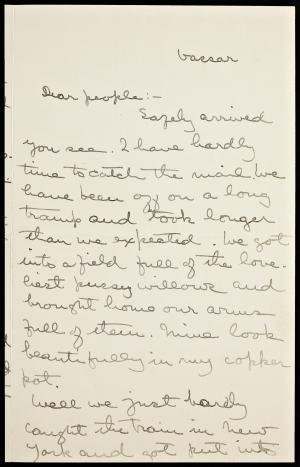 Vassar
Dear people:-
Safely arrived
you see. I have hardly
time to catch the mail. We
have been off on a long
tramp and took longer
than we expected. We got
into a field full of the love-
liest pussy willows and
brought home our arms
full of them. Mine look
beautifully in my copper
pot.
Well we just hardly
caught the train in New
York and got put into